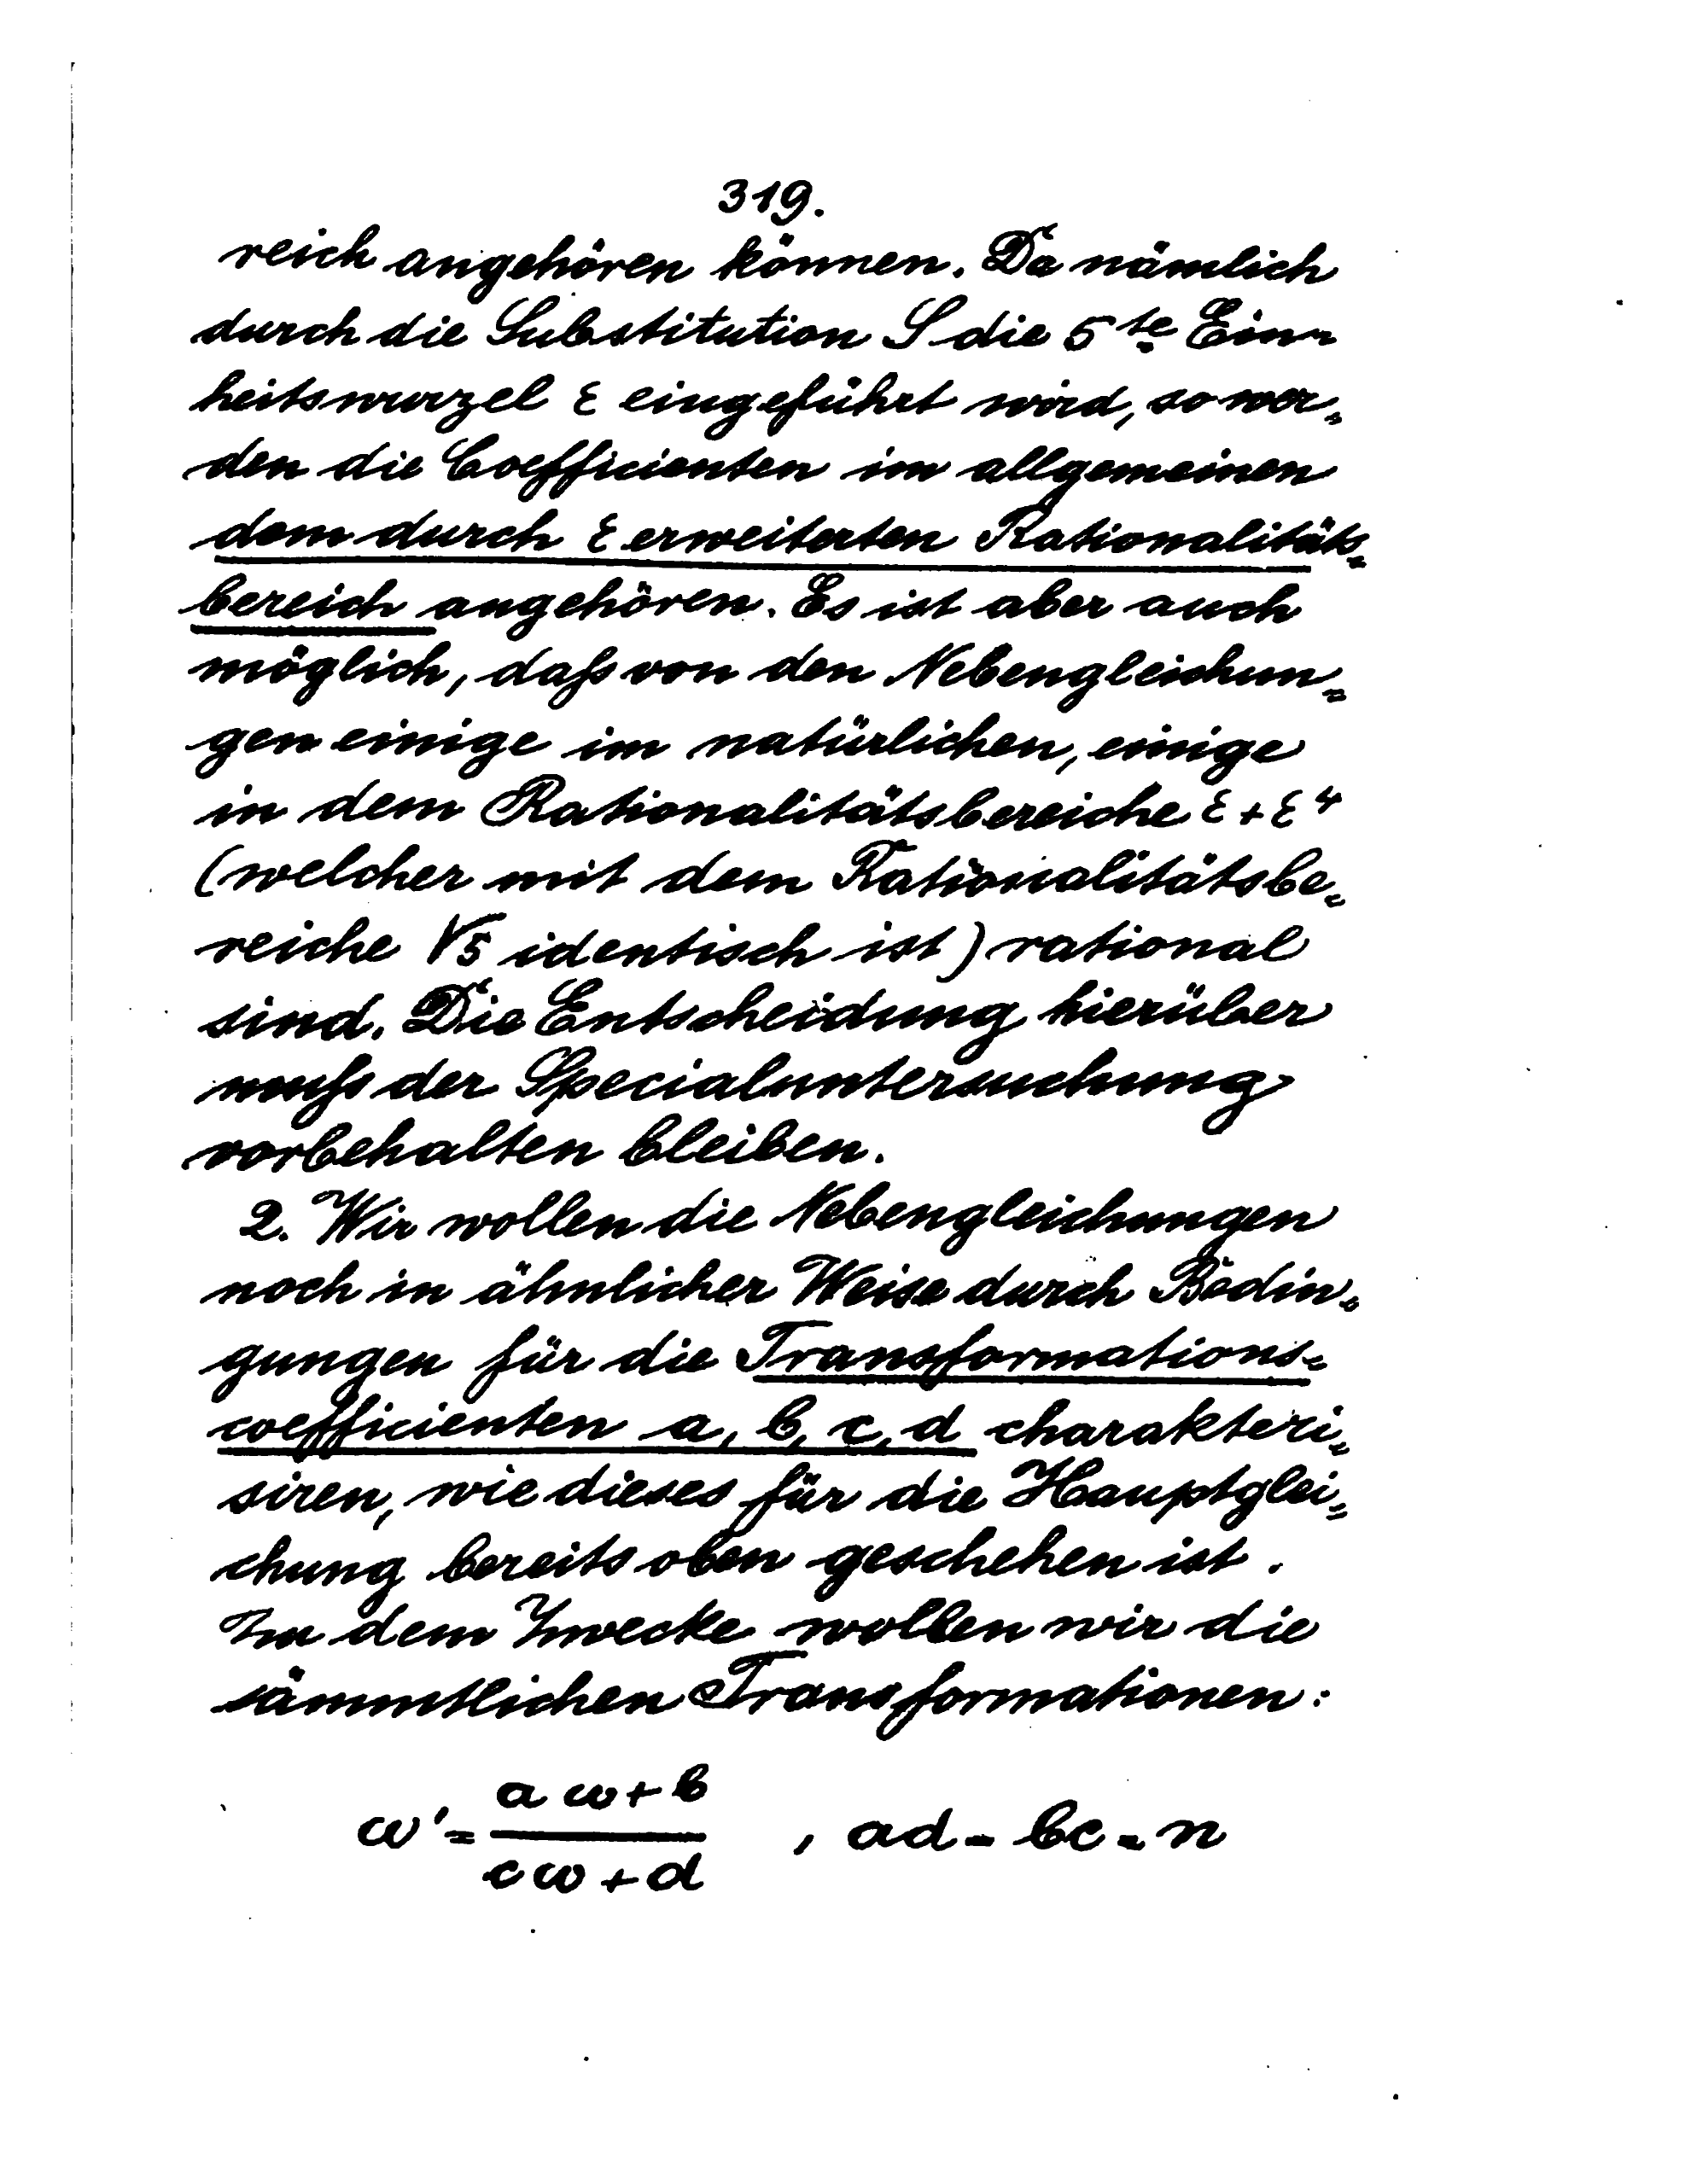 319.
reich angehören können. Da nämlich
durch die Substitution S die 5te Ein-
heitswurzel ε eingeführt wird, so wer-
den die Coefficienten im allgemeinen
dem durch ε erweiterten Rationalitäts-
bereich angehören. Es ist aber auch
möglich, daß von den Nebengleichun-
gen einige im natürlichen, einige
in dem Rationalitätsbereiche ε + ε⁴
(welcher mit dem Rationalitätsbe-
reiche √5 identisch ist) rational
sind. Die Entscheidung hierüber
muß der Specialuntersuchung
vorbehalten bleiben.
2. Wir wollen die Nebengleichungen
noch in ähnlicher Weise durch Bedin-
gungen für die Transformations-
coefficienten a, b, c, d charakteri-
siren, wie dieses für die Hauptglei-
chung bereits oben geschehen ist.
Zu dem Zwecke wollen wir die
sämmtlichen Transformationen:
ω' = (aω + b)/(cω + d), ad - bc = n